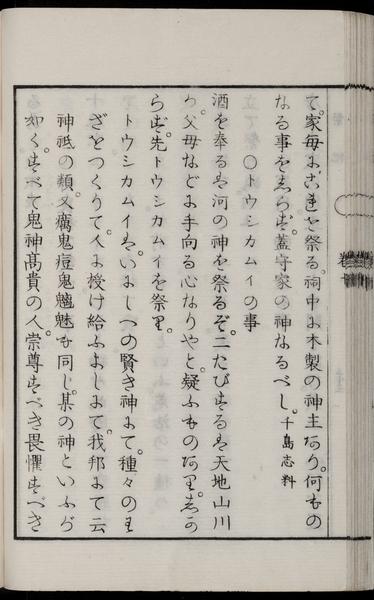 て。家毎にこれを祭る。祠中に木製の神主あり。何もの
なる事をしらず。蓋守家の神なるべし。千島志料
〇トウシカムイの事
酒を奉るは河の神を祭るぞ。二たびするは天地山川
か。父母などに手向る心なりやと。疑ふものあり。しか
らず。先トウシカムイを祭り。
トウシカムイは。いにしへの賢き神にて。種々のわ
ざをつくりて。人に授け給ふよしにて。我邦にて云
神祇の類。又癘鬼痘鬼魑魅も同じ。某の神といふが
如く。すべて鬼神高貴の人。崇尊すべき畏懼すべき